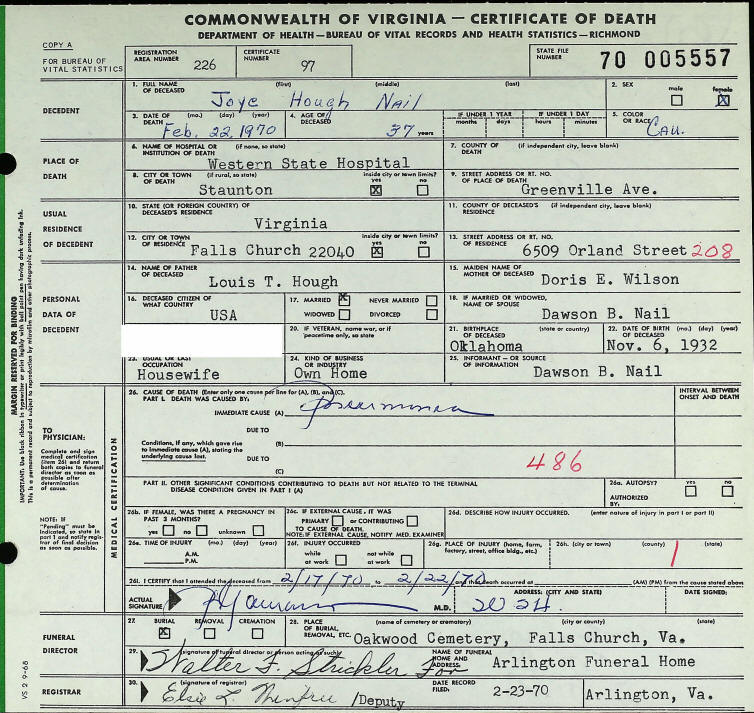 COMMONWEALTH OF VIRGINIA — CERTIFICATE OF DEATH
DEPARTMENT OF HEALTH — BUREAU OF VITAL RECORDS AND HEALTH STATISTICS — RICHMOND
COPY A
FOR BUREAU OF VITAL STATISTICS
REGISTRATION AREA NUMBER 226
CERTIFICATE NUMBER 97
STATE FILE NUMBER 70 005557
DECEDENT
1. FULL NAME OF DECEASED (first) (middle) (last)
Joye Hough Nail
2. SEX male female
3. DATE OF DEATH (mo.) (day) (year)
Feb. 22, 1970
4. AGE OF DECEASED 37 years
IF UNDER 1 YEAR months days
IF UNDER 1 DAY hours minutes
5. COLOR OR RACE Cau.
PLACE OF DEATH
6. NAME OF HOSPITAL OR INSTITUTION OF DEATH (if none, so state)
Western State Hospital
7. COUNTY OF DEATH (if independent city, leave blank)
8. CITY OR TOWN OF DEATH (if rural, so state) inside city or town limits? yes no
Staunton
9. STREET ADDRESS OR RT. NO. OF PLACE OF DEATH
Greenville Ave.
USUAL RESIDENCE OF DECEDENT
10. STATE (OR FOREIGN COUNTRY) OF DECEASED'S RESIDENCE
Virginia
11. COUNTY OF DECEASED'S RESIDENCE (if independent city, leave blank)
12. CITY OR TOWN OF RESIDENCE inside city or town limits? yes no
Falls Church 22040
13. STREET ADDRESS OR RT. NO. OF RESIDENCE
6509 Orland Street 208
PERSONAL DATA OF DECEDENT
14. NAME OF FATHER OF DECEASED
Louis T. Hough
15. MAIDEN NAME OF MOTHER OF DECEASED
Doris E. Wilson
16. DECEASED CITIZEN OF WHAT COUNTRY
USA
17. MARRIED NEVER MARRIED
WIDOWED DIVORCED
18. IF MARRIED OR WIDOWED, NAME OF SPOUSE
Dawson B. Nail
20. IF VETERAN, name war, or if peacetime only, so state
21. BIRTHPLACE OF DECEASED (state or country)
Oklahoma
22. DATE OF BIRTH (mo.) (day) (year) OF DECEASED
Nov. 6, 1932
23. USUAL OR LAST OCCUPATION
Housewife
24. KIND OF BUSINESS OR INDUSTRY
Own Home
25. INFORMANT — OR SOURCE OF INFORMATION
Dawson B. Nail
MARGIN RESERVED FOR BINDING
TO PHYSICIAN:
Complete and sign medical certification (item 26) and return both copies to funeral director as soon as possible after determination of cause.
NOTE: IF "Pending" must be indicated, so state in part I and notify registrar of final decision as soon as possible.
MEDICAL CERTIFICATION
26. CAUSE OF DEATH (Enter only one cause per line for (A), (B), and (C).
PART I. DEATH WAS CAUSED BY:
INTERVAL BETWEEN ONSET AND DEATH
IMMEDIATE CAUSE (A)
DUE TO
Conditions, if any, which gave rise to immediate cause (A), stating the underlying cause last. (B)
DUE TO
(C)
486
PART II. OTHER SIGNIFICANT CONDITIONS CONTRIBUTING TO DEATH BUT NOT RELATED TO THE TERMINAL DISEASE CONDITION GIVEN IN PART I (A)
26a. AUTOPSY? yes no
AUTHORIZED BY:
26b. IF FEMALE, WAS THERE A PREGNANCY IN PAST 3 MONTHS?
yes no unknown
26c. IF EXTERNAL CAUSE, IT WAS
PRIMARY or CONTRIBUTING
TO CAUSE OF DEATH.
NOTE: IF EXTERNAL CAUSE, NOTIFY MED. EXAMINER
26d. DESCRIBE HOW INJURY OCCURRED. (enter nature of injury in part I or part II)
26e. TIME OF INJURY (mo.) (day) (year)
A.M.
P.M.
26f. INJURY OCCURRED
while at work not while at work
26g. PLACE OF INJURY (home, farm, factory, street, office bldg., etc.)
26h. (city or town) (county) (state)
26i. I CERTIFY that I attended the deceased from 2/17/70 to 2/22/70 and that death occurred at (AM) (PM) from the cause stated above
ACTUAL SIGNATURE M.D.
ADDRESS: (CITY AND STATE)
DATE SIGNED:
FUNERAL DIRECTOR
27. BURIAL REMOVAL CREMATION
28. PLACE OF BURIAL, REMOVAL, ETC. (name of cemetery or crematory) (city or county) (state)
Oakwood Cemetery, Falls Church, Va.
29. (signature of funeral director or person acting as such)
Walter F. Strickler For
NAME OF FUNERAL HOME AND ADDRESS:
Arlington Funeral Home
REGISTRAR
30. (signature of registrar)
Elsie L. /Deputy
DATE RECORD FILED: 2-23-70
Arlington, Va.
VS 2 9-68